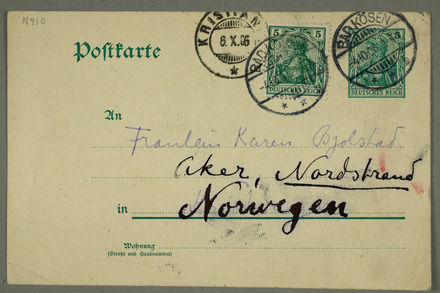 N910
Postkarte
KRISTIAN
6.X.06
BAD KÖSEN
5 5
DEUTSCHES REICH
BAD KÖSEN
4.10.06
5
DEUTSCHES REICH
An
Fräulein Karen Bjolstad
Aker, Nordstrand
in Norwegen
Wohnung
(Straße und Hausnummer)